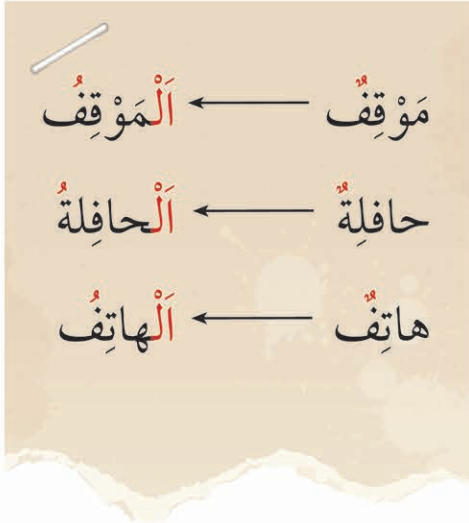 مَوْقِفٌ ← اَلْمَوْقِفُ
حافِلةٌ ← اَلْحافِلةُ
هاتِفٌ ← اَلْهاتِفُ